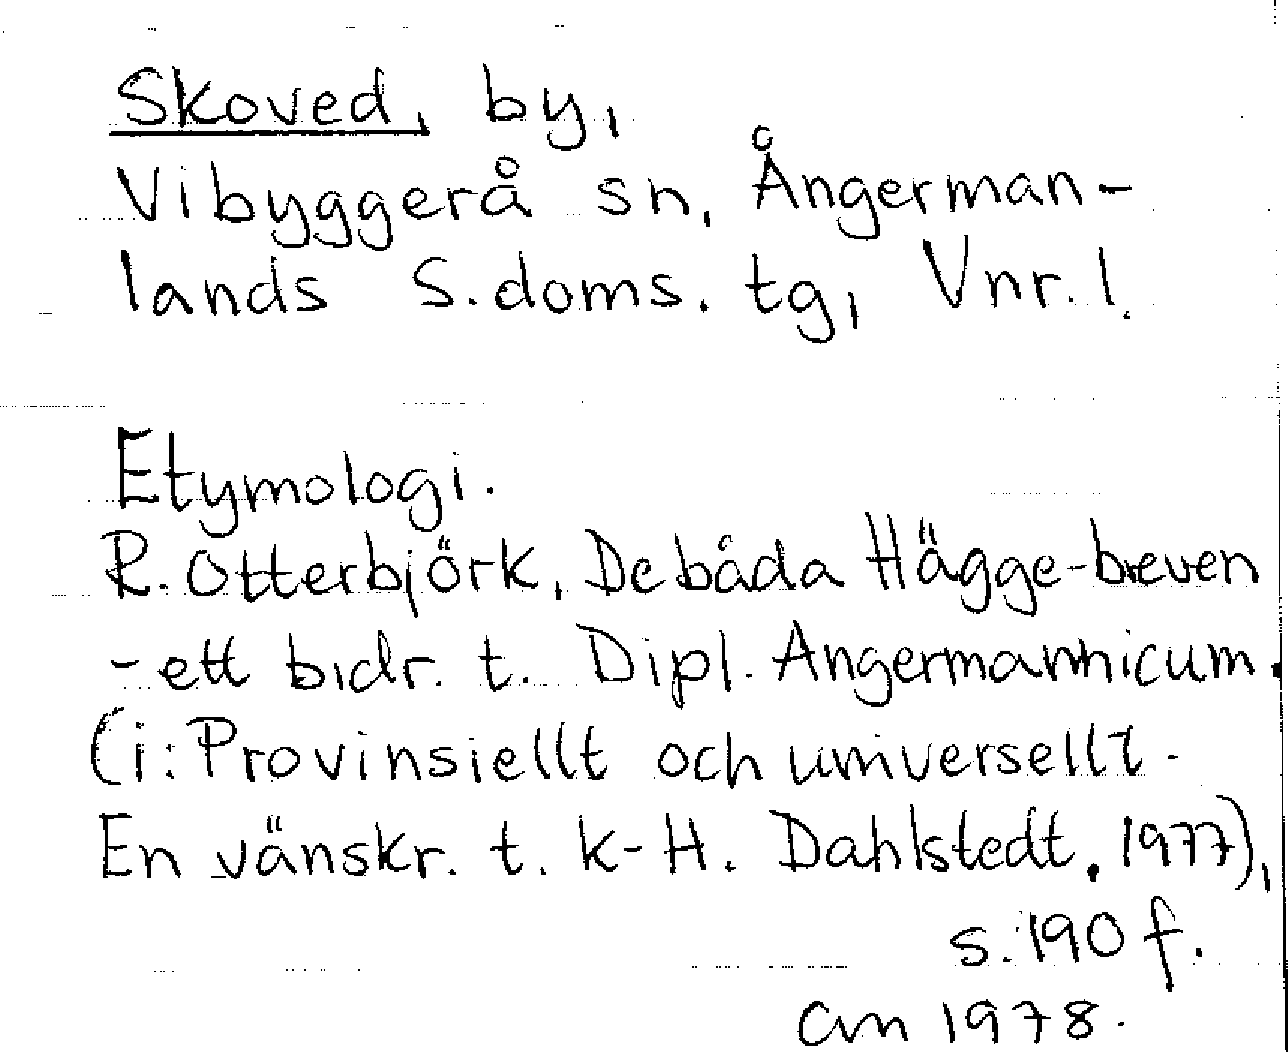 Skoved, by,
Vibyggerå sn, Ångerman-
lands S. doms. tg, Vnr. l.
Etymologi.
R. Otterbjörk, De båda Hägge-breven
- ett bidr. t. Dipl. Angermannicum.
(i: Provinsiellt och universellt.
En vänskr. t. K-H. Dahlstedt. 1977),
s. 190 f.
Cm 1978.